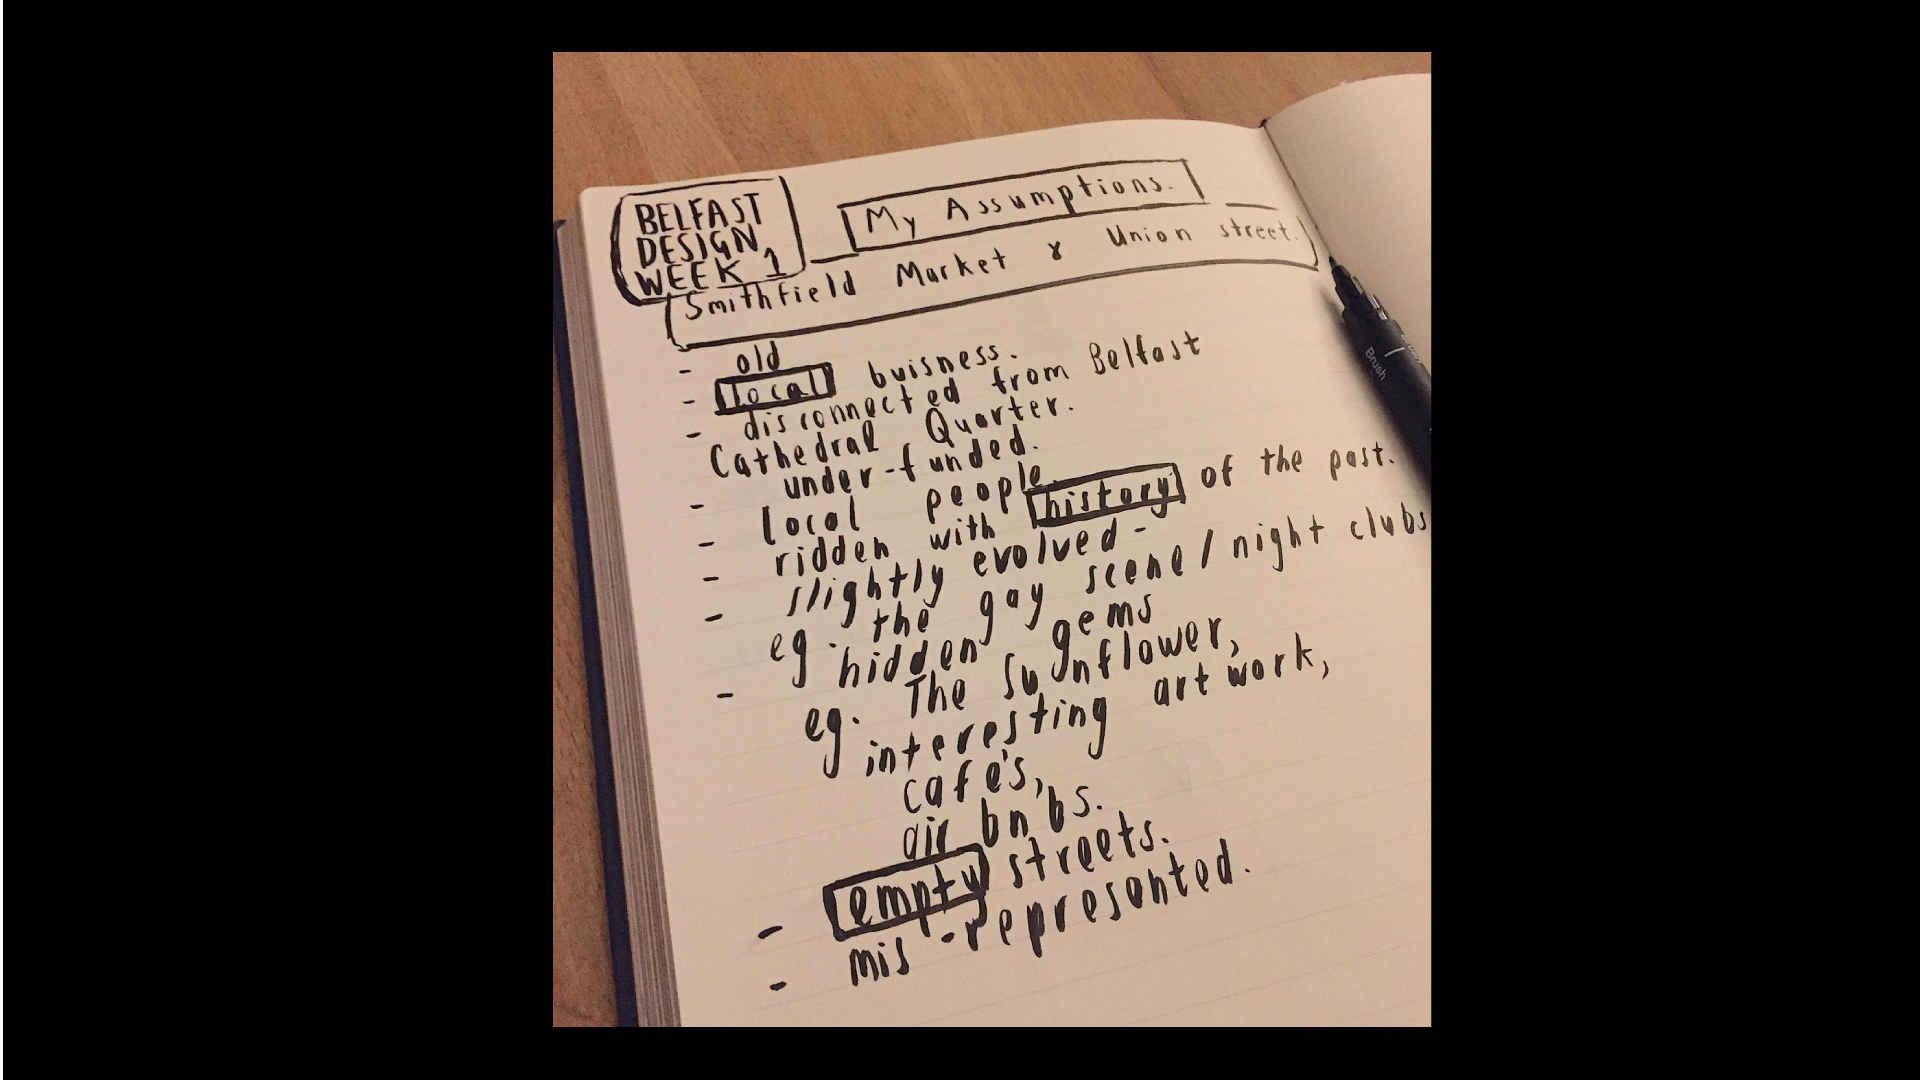 BELFAST
DESIGN
WEEK 1
My Assumptions.
Smithfield Market & Union street.
- old
- local buisness.
- disconnected from Belfast
Cathedral Quarter.
- under-funded.
- local people.
- ridden with history of the past.
- slightly evolved -
eg. the gay scene / night clubs
- hidden gems
eg. The Sunflower,
interesting artwork,
cafe's,
air bn'bs.
- empty streets.
- mis-represented.
Brush